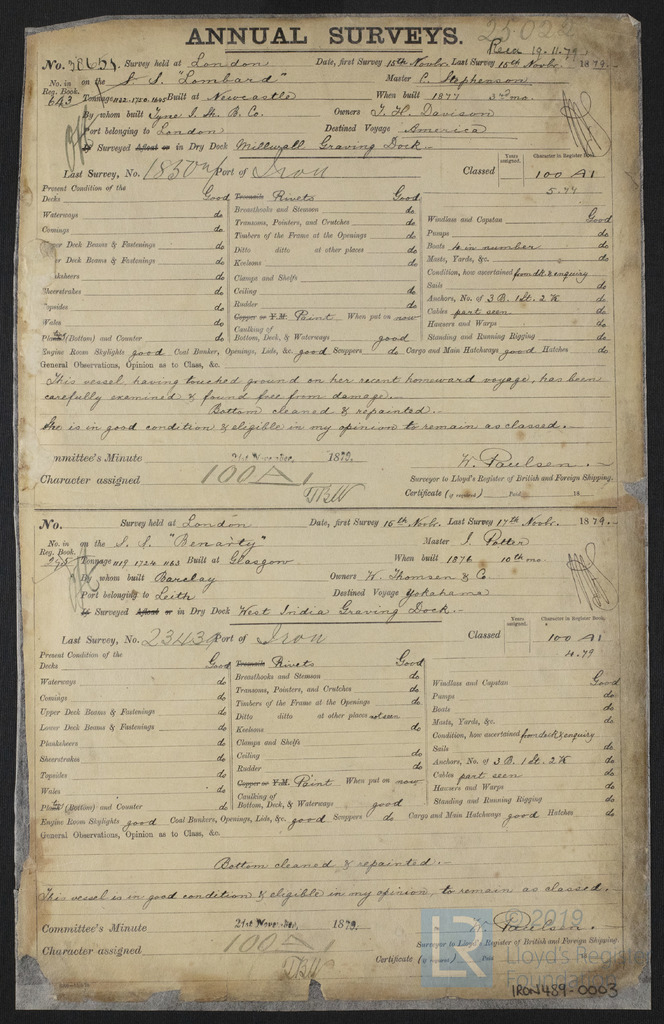 25022
ANNUAL SURVEYS.
Recd 19.11.79
No. 38651 Survey held at London Date, first Survey 15th Novbr. Last Survey 15th Novbr. 1879.
No. in on the S. S. "Lombard" Master C. Stephenson
Reg. Book.
643 Tonnage 1122.1750.1605 Built at Newcastle When built 1877 3rd mo.
By whom built Tyne I. Sh. B. Co. Owners J. H. Davison
Port belonging to London Destined Voyage America
If Surveyed Afloat or in Dry Dock Millwall Graving Dock.
Last Survey, No. 1830 Port of Iron Classed Years assigned. Character in Register Book.
100 A1
5.79
Present Condition of the
Decks Good Treenails Rivets Good
Waterways do Breasthooks and Stemson do Windlass and Capstan Good
Comings do Transoms, Pointers, and Crutches do Pumps do
Upper Deck Beams & Fastenings do Timbers of the Frame at the Openings do Boats 4 in number do
er Deck Beams & Fastenings do Ditto ditto at other places do Masts, Yards, &c. do
Keelsons do Condition, how ascertained from dk. & enquiry
anksheers do Clamps and Shelfs do Sails do
Sheerstrakes do Ceiling do Anchors, No. of 3 B. 1 St. 2 K do
Topsides do Rudder do Cables part seen do
Wales do Copper or Y.M. Paint When put on now Hawsers and Warps do
Plank (Bottom) and Counter do Caulking of Bottom, Deck, & Waterways good Standing and Running Rigging do
Engine Room Skylights good Coal Bunker, Openings, Lids, &c. good Scuppers do Cargo and Main Hatchways good Hatches do
General Observations, Opinion as to Class, &c.
This vessel having touched ground on her recent homeward voyage, has been
carefully examined & found free from damage.
Bottom cleaned & repainted.
She is in good condition & eligible in my opinion to remain as classed.
mmittee's Minute 21st November, 1879. W. Paulsen.
Character assigned 100 A 1 Surveyor to Lloyd's Register of British and Foreign Shipping.
TBW Certificate (if required) Paid 18
No. Survey held at London Date, first Survey 15th Novbr. Last Survey 17th Novbr. 1879.
No. in on the S. S. "Benarty" Master J. Potter
Reg. Book.
295 Tonnage 1119 1724 1163 Built at Glasgow When built 1876 10th mo.
By whom built Barclay Owners W. Thomsen & Co.
Port belonging to Leith Destined Voyage Yokahama
If Surveyed Afloat or in Dry Dock West India Graving Dock.
Last Survey, No. 23439 Port of Iron Classed Years assigned. Character in Register Book.
100 A1
4.79
Present Condition of the
Decks Good Treenails Rivets Good
Waterways do Breasthooks and Stemson do Windlass and Capstan Good
Comings do Transoms, Pointers, and Crutches do Pumps do
Upper Deck Beams & Fastenings do Timbers of the Frame at the Openings do Boats do
Lower Deck Beams & Fastenings do Ditto ditto at other places not seen Masts, Yards, &c. do
Keelsons do Condition, how ascertained from deck & enquiry
Planksheers do Clamps and Shelfs Sails do
Sheerstrakes do Ceiling do Anchors, No. of 3 B. 1 St. 2 K do
Topsides do Rudder do Cables part seen do
Wales do Copper or Y.M. Paint When put on now Hawsers and Warps do
Plank (Bottom) and Counter do Caulking of Bottom, Deck, & Waterways good Standing and Running Rigging do
Engine Room Skylights good Coal Bunker, Openings, Lids, &c. good Scuppers do Cargo and Main Hatchways good Hatches do
General Observations, Opinion as to Class, &c.
Bottom cleaned & repainted.
This vessel is in good condition & eligible in my opinion, to remain as classed.
Committee's Minute 21st November, 1879. W. Paulsen
Character assigned 100 A 1 Surveyor to Lloyd's Register of British and Foreign Shipping.
TBW Certificate (if required) Paid
LR ©2019
Lloyd's Register
Foundation
IRON489-0003